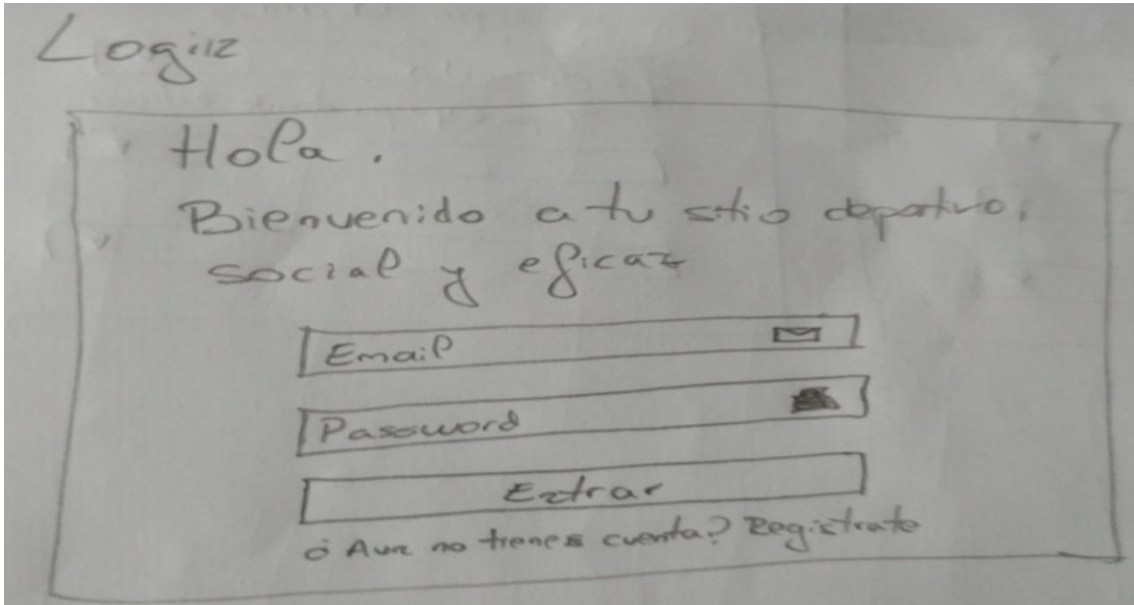 Login
Hola.
Bienvenido a tu sitio deportivo,
social y eficaz
Email
Password
Entrar
¿Aun no tienes cuenta? Registrate